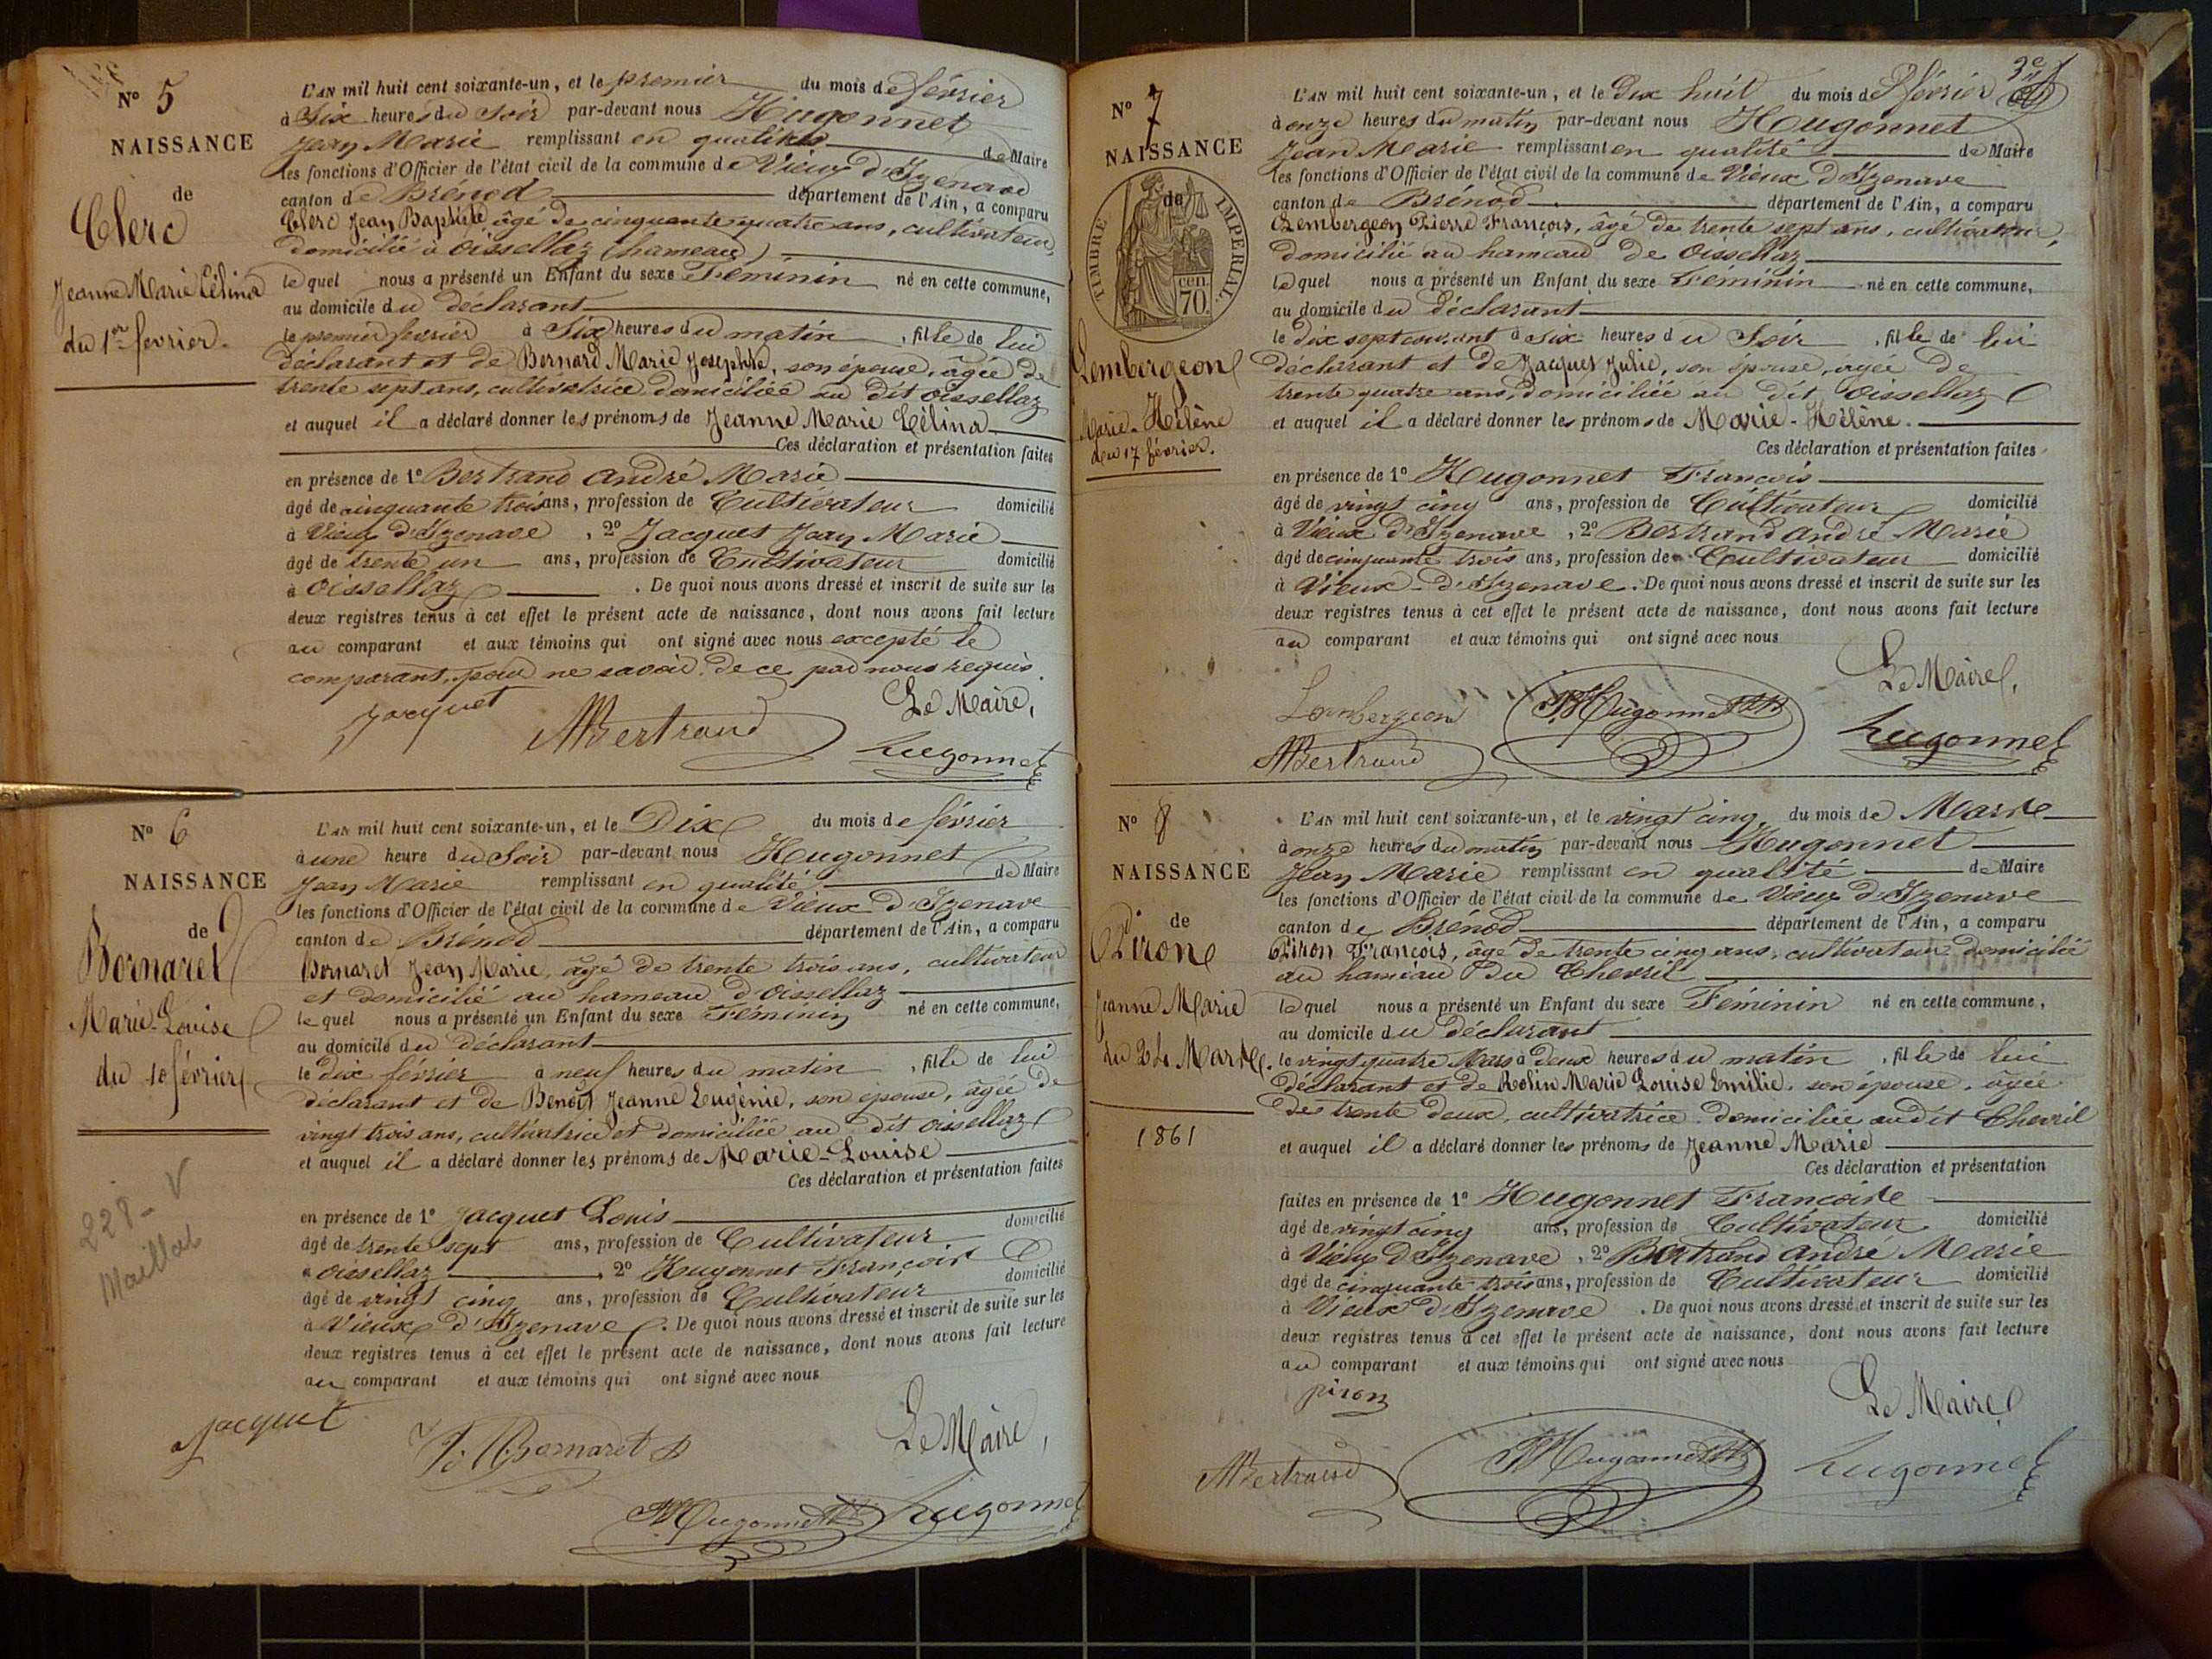 N° 5
NAISSANCE
de
Clerc
Jeanne Marie Célina
du 1er fevrier.
L'AN mil huit cent soixante-un, et le premier du mois de février
à Six heures du Soir par-devant nous Hugonnet
Jean Marie remplissant en qualité de Maire
les fonctions d'Officier de l'état civil de la commune de Vieux d'Izenave
canton de Brénod département de l'Ain, a comparu
Clerc Jean Baptiste âgé de cinquante quatre ans, cultivateur,
domicilié à Oissellaz (hameau)
lequel nous a présenté un Enfant du sexe Féminin né en cette commune,
au domicile du déclarant
le premier fevrier à Six heures du matin, fille de lui
déclarant et de Bernard Marie Josephte, son épouse, âgée de
trente sept ans, cultivatrice domiciliée au dit Oissellaz
et auquel il a déclaré donner les prénoms de Jeanne Marie Célina
Ces déclaration et présentation faites
en présence de 1° Bertrand André Marie
âgé de cinquante trois ans, profession de Cultivateur domicilié
à Vieux d'Izenave, 2° Jacquet Jean Marie
âgé de trente un ans, profession de Cultivateur domicilié
à Oissellaz. De quoi nous avons dressé et inscrit de suite sur les
deux registres tenus à cet effet le présent acte de naissance, dont nous avons fait lecture
au comparant et aux témoins qui ont signé avec nous excepté le
comparant, pour ne savoir de ce par nous requis.
Jacquet
ABertrand
Le Maire,
hugonnet
N° 6
NAISSANCE
de
Bornaret
Marie-Louise
du 10 février
228- V
Maillat
L'AN mil huit cent soixante-un, et le Dix du mois de février
à une heure du Soir par-devant nous Hugonnet
Jean Marie remplissant en qualité de Maire
les fonctions d'Officier de l'état civil de la commune de Vieux d'Izenave
canton de Brénod département de l'Ain, a comparu
Bornaret Jean Marie, âgé de trente trois ans, cultivateur
et domicilié au hameau d'Oissellaz
lequel nous a présenté un Enfant du sexe Féminin né en cette commune,
au domicile du déclarant
le dix février à neuf heures du matin, fille de lui
déclarant et de Benoît Jeanne Eugénie, son épouse, âgée de
vingt trois ans, cultivatrice et domiciliée au dit Oissellaz
et auquel il a déclaré donner les prénoms de Marie-Louise
Ces déclaration et présentation faites
en présence de 1° Jacquet Louis
âgé de trente sept ans, profession de Cultivateur domicilié
à Oissellaz 2° Hugonnet François
âgé de vingt cinq ans, profession de Cultivateur domicilié
à Vieux d'Izenave. De quoi nous avons dressé et inscrit de suite sur les
deux registres tenus à cet effet le présent acte de naissance, dont nous avons fait lecture
au comparant et aux témoins qui ont signé avec nous
Jacquet
Bornaret
Le Maire,
Hugonnet
hugonnet
N° 7
NAISSANCE
de
TIMBRE IMPERIAL.
70. cen
Lembergeon
Marie-Hélène
du 17 février.
L'AN mil huit cent soixante-un, et le Dix huit du mois de février
à onze heures du matin par-devant nous Hugonnet
Jean Marie remplissant en qualité de Maire
les fonctions d'Officier de l'état civil de la commune de Vieux d'Izenave
canton de Brénod département de l'Ain, a comparu
Lembergeon Pierre François, âgé de trente sept ans, cultivateur,
domicilié au hameau de Oissellaz
lequel nous a présenté un Enfant du sexe Féminin né en cette commune,
au domicile du déclarant
le dix sept courant à six heures du Soir, fille de lui
déclarant et de Jacquet Julie, son épouse, agée de
trente quatre ans, domiciliée au dit Oissellaz
et auquel il a déclaré donner les prénoms de Marie-Hélène.
Ces déclaration et présentation faites
en présence de 1° Hugonnet François
âgé de vingt cinq ans, profession de Cultivateur domicilié
à Vieux d'Izenave, 2° Bertrand André Marie
âgé de cinquante trois ans, profession de Cultivateur domicilié
à Vieux-d'Izenave. De quoi nous avons dressé et inscrit de suite sur les
deux registres tenus à cet effet le présent acte de naissance, dont nous avons fait lecture
au comparant et aux témoins qui ont signé avec nous
Le Maire,
Lembergeon
Hugonnet
hugonnet
ABertrand
N° 8
NAISSANCE
de
Piron
Jeanne Marie
du 24 Mars.
1861
L'AN mil huit cent soixante-un, et le vingt cinq du mois de Mars
à onze heures du matin par-devant nous Hugonnet
Jean Marie remplissant en qualité de Maire
les fonctions d'Officier de l'état civil de la commune de Vieux d'Izenave
canton de Brénod département de l'Ain, a comparu
Piron François, âgé de trente cinq ans, cultivateur domicilié
au hameau du Chevril
lequel nous a présenté un Enfant du sexe Féminin né en cette commune,
au domicile du déclarant
le vingt quatre Mars à deux heures du matin, fille de lui
déclarant et de Rolin Marie Louise Emilie, son épouse, âgée
de trente deux, cultivatrice domiciliée audit Chevril
et auquel il a déclaré donner les prénoms de Jeanne Marie
Ces déclaration et présentation
faites en présence de 1° Hugonnet François
âgé de vingt cinq ans, profession de Cultivateur domicilié
à Vieux d'Izenave, 2° Bertrand André Marie
âgé de cinquante-trois ans, profession de Cultivateur domicilié
à Vieux d'Izenave. De quoi nous avons dressé et inscrit de suite sur les
deux registres tenus à cet effet le présent acte de naissance, dont nous avons fait lecture
au comparant et aux témoins qui ont signé avec nous
piron
Le Maire
ABertrand
Hugonnet
hugonnet